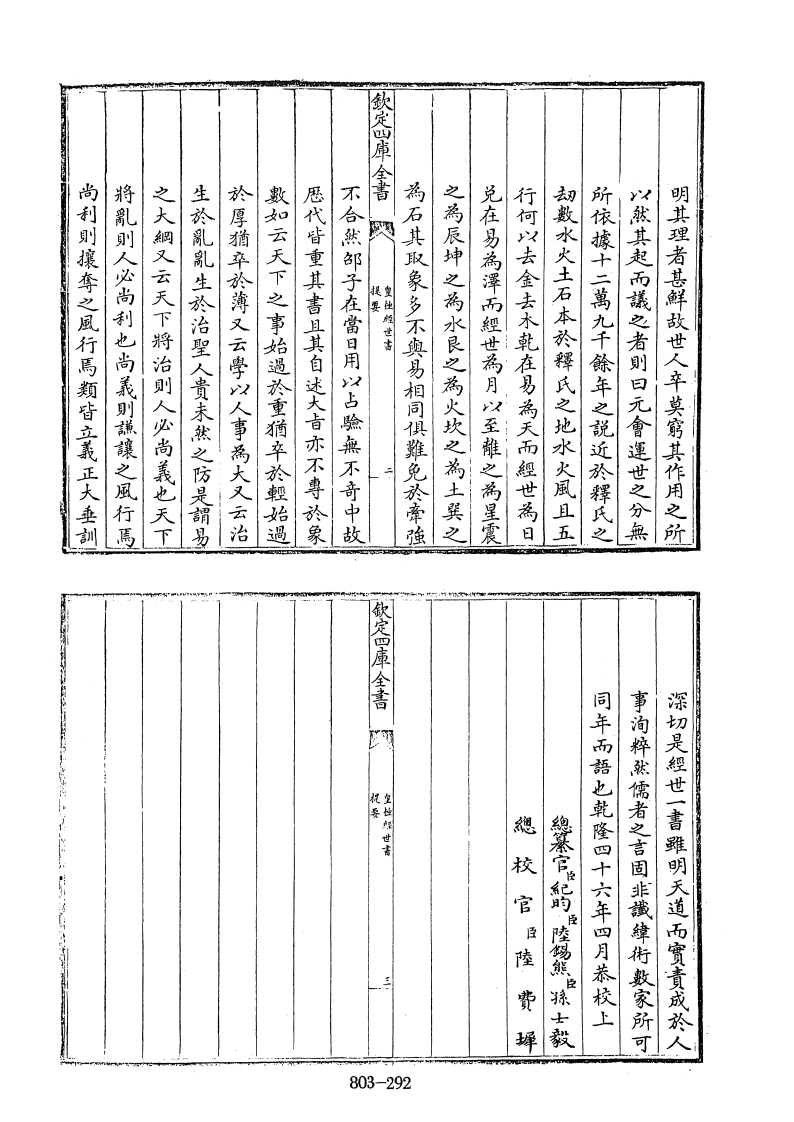 明其理者甚鮮故世人卒莫窮其作用之所
以然其起而議之者則曰元會運世之分無
所依據十二萬九千餘年之説近於釋氏之
劫數水火土石本於釋氏之地水火風且五
行何以去金去木乾在易為天而經世為日
兑在易為澤而經世為月以至離之為星震
之為辰坤之為水艮之為火坎之為土巽之
為石其取象多不與易相同俱難免於牽強
欽定四庫全書
皇極經世書
提要
二
不合然邵子在當日用以占驗無不竒中故
歴代皆重其書且其自述大㫖亦不專於象
數如云天下之事始過於重猶卒於輕始過
於厚猶卒於薄又云學以人事為大又云治
生於亂亂生於治聖人貴未然之防是謂易
之大綱又云天下將治則人必尚義也天下
將亂則人必尚利也尚義則謙讓之風行焉
尚利則攘奪之風行焉類皆立義正大垂訓
深切是經世一書雖明天道而實責成於人
事洵粹然儒者之言固非讖緯術數家所可
同年而語也乾隆四十六年四月恭校上
總纂官臣紀昀臣陸錫熊臣孫士毅
總校官臣陸費墀
欽定四庫全書
皇極經世書
提要
三
803-292